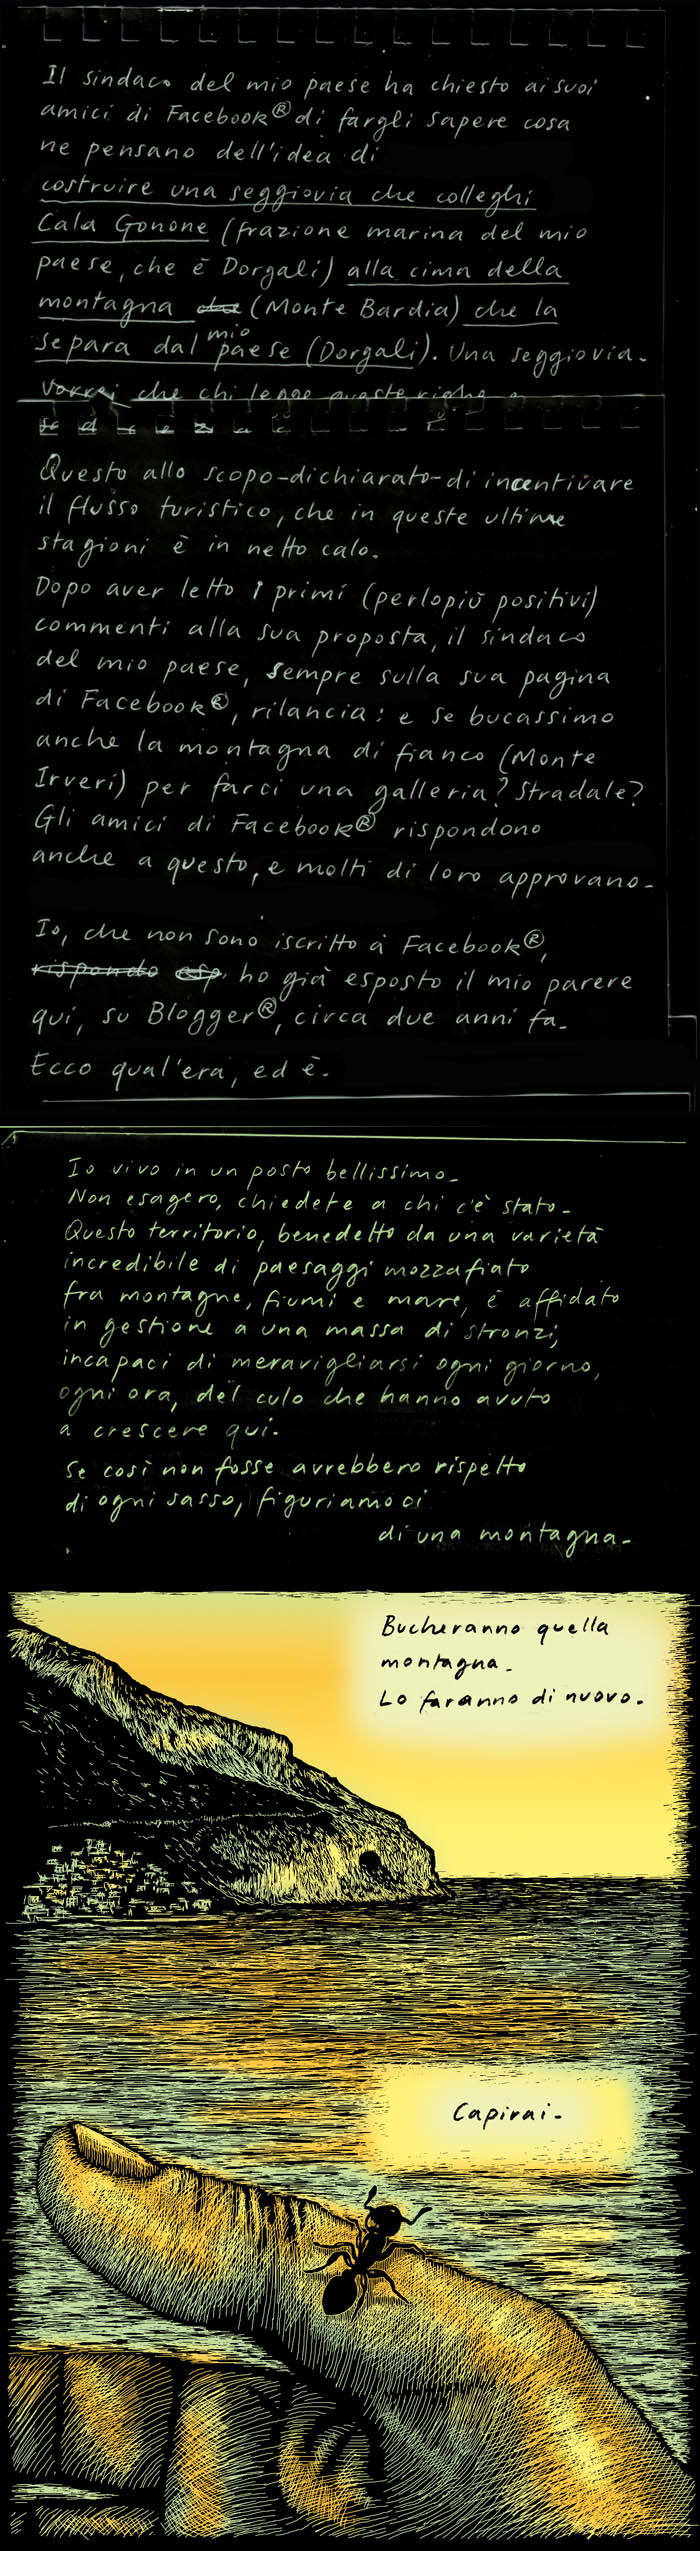 Il sindaco del mio paese ha chiesto ai suoi
amici di Facebook® di fargli sapere cosa
ne pensano dell'idea di
costruire una seggiovia che colleghi
Cala Gonone (frazione marina del mio
paese, che è Dorgali) alla cima della
montagna che (Monte Bardia) che la
separa dal mio paese (Dorgali). Una seggiovia.
Vorrei che chi legge queste righe
Questo allo scopo-dichiarato-di incentivare
il flusso turistico, che in queste ultime
stagioni è in netto calo.
Dopo aver letto i primi (perlopiù positivi)
commenti alla sua proposta, il sindaco
del mio paese, sempre sulla sua pagina
di Facebook®, rilancia: e se bucassimo
anche la montagna di fianco (Monte
Irveri) per farci una galleria? Stradale?
Gli amici di Facebook® rispondono
anche a questo, e molti di loro approvano.
Io, che non sono iscritto a Facebook®,
rispondo esp. ho già esposto il mio parere
qui, su Blogger®, circa due anni fa.
Ecco qual'era, ed è.
Io vivo in un posto bellissimo.
Non esagero, chiedete a chi c'è stato.
Questo territorio, benedetto da una varietà
incredibile di paesaggi mozzafiato
fra montagne, fiumi e mare, è affidato
in gestione a una massa di stronzi,
incapaci di meravigliarsi ogni giorno,
ogni ora, del culo che hanno avuto
a crescere qui.
Se così non fosse avrebbero rispetto
di ogni sasso, figuriamoci
di una montagna.
Bucheranno quella
montagna.
Lo faranno di nuovo.
Capirai.